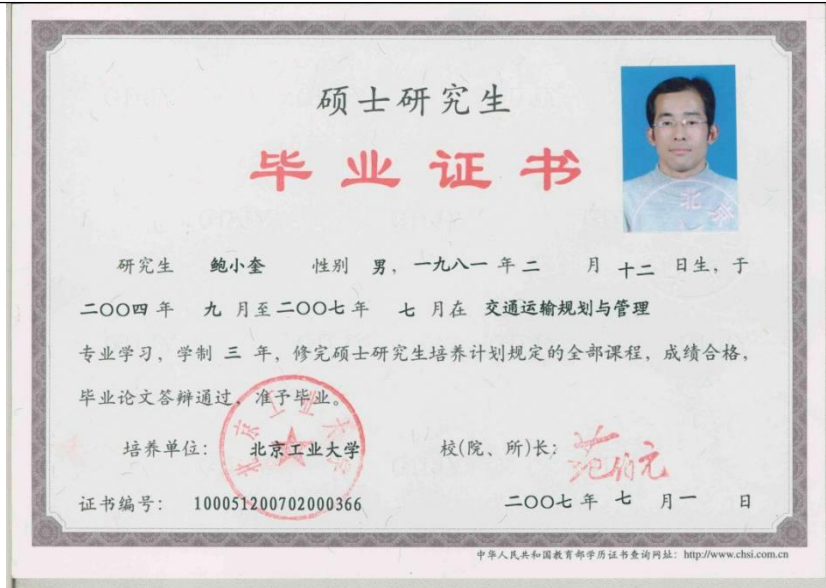 硕士研究生
毕业证书
北京
研究生 鲍小奎 性别 男，一九八一 年 二 月 十二 日生，于
二〇〇四 年 九 月至 二〇〇七 年 七 月在 交通运输规划与管理
专业学习，学制 三 年，修完硕士研究生培养计划规定的全部课程，成绩合格，
毕业论文答辩通过，准予毕业。
北京工业大学
培养单位： 北京工业大学 校(院、所)长： 范伯元
证书编号： 100051200702000366 二〇〇七 年 七 月 一 日
中华人民共和国教育部学历证书查询网址：http://www.chsi.com.cn